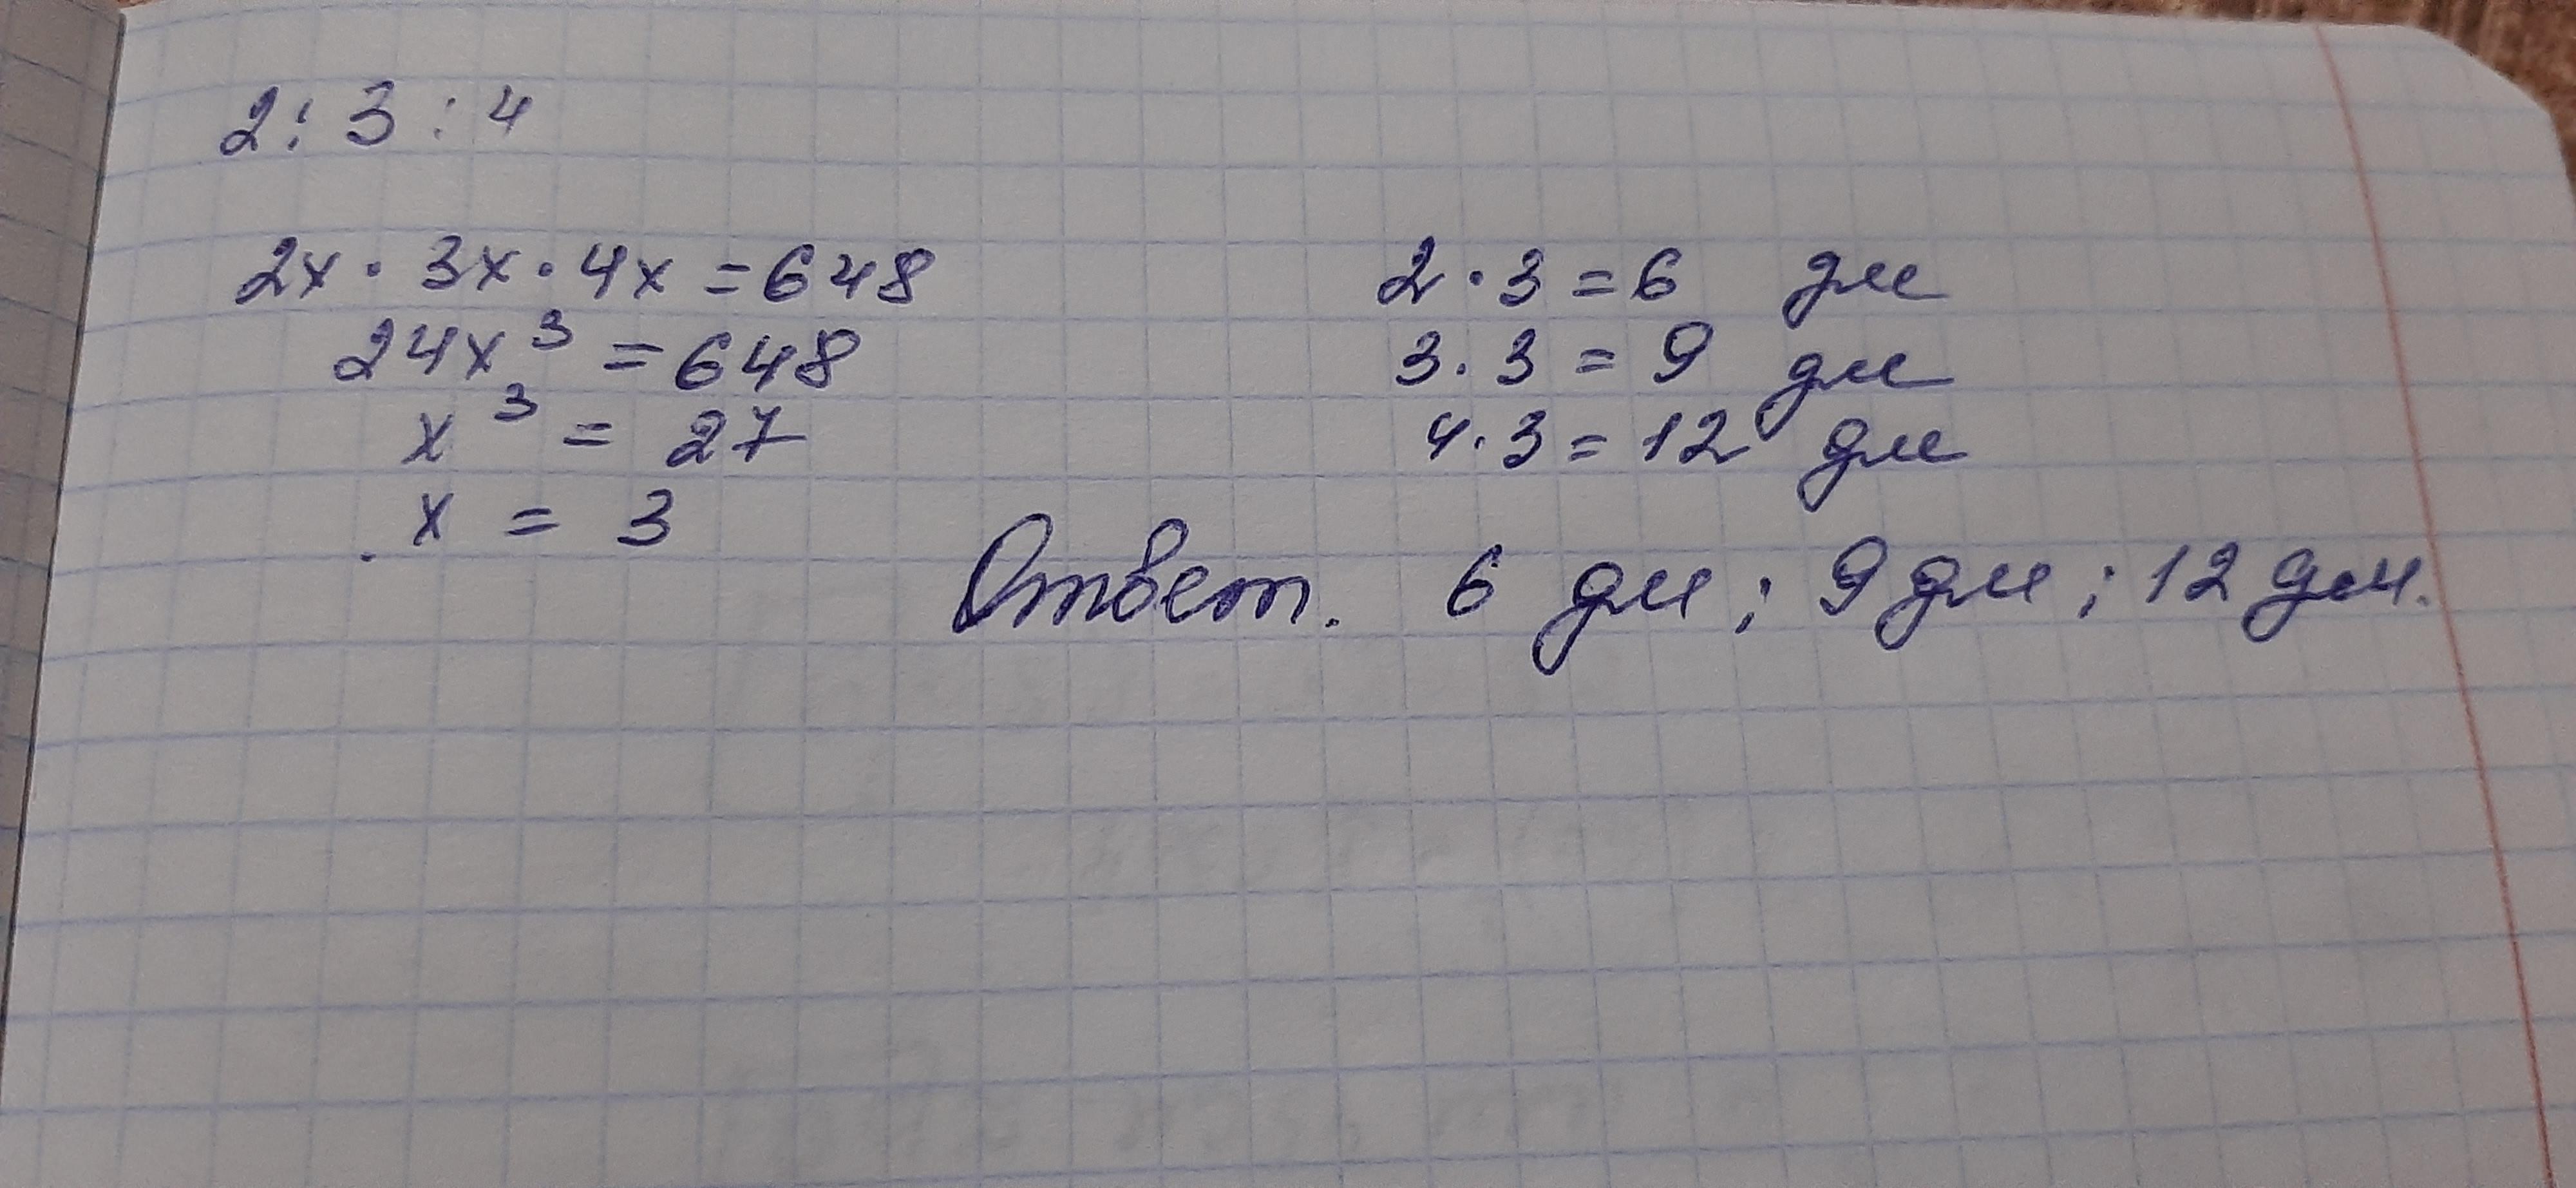 2 : 3 : 4
2x · 3x · 4x = 648
24x³ = 648
x³ = 27
x = 3
2 · 3 = 6 дм
3 · 3 = 9 дм
4 · 3 = 12 дм
Ответ. 6 дм ; 9 дм ; 12 дм.